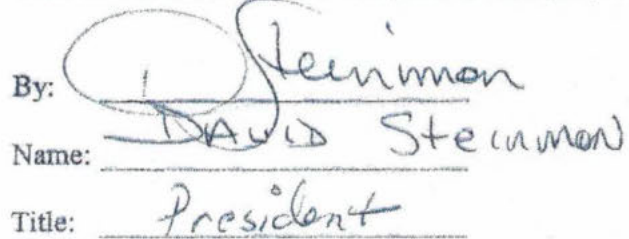 By: D Steinman
Name: DAVID Steinman
Title: President